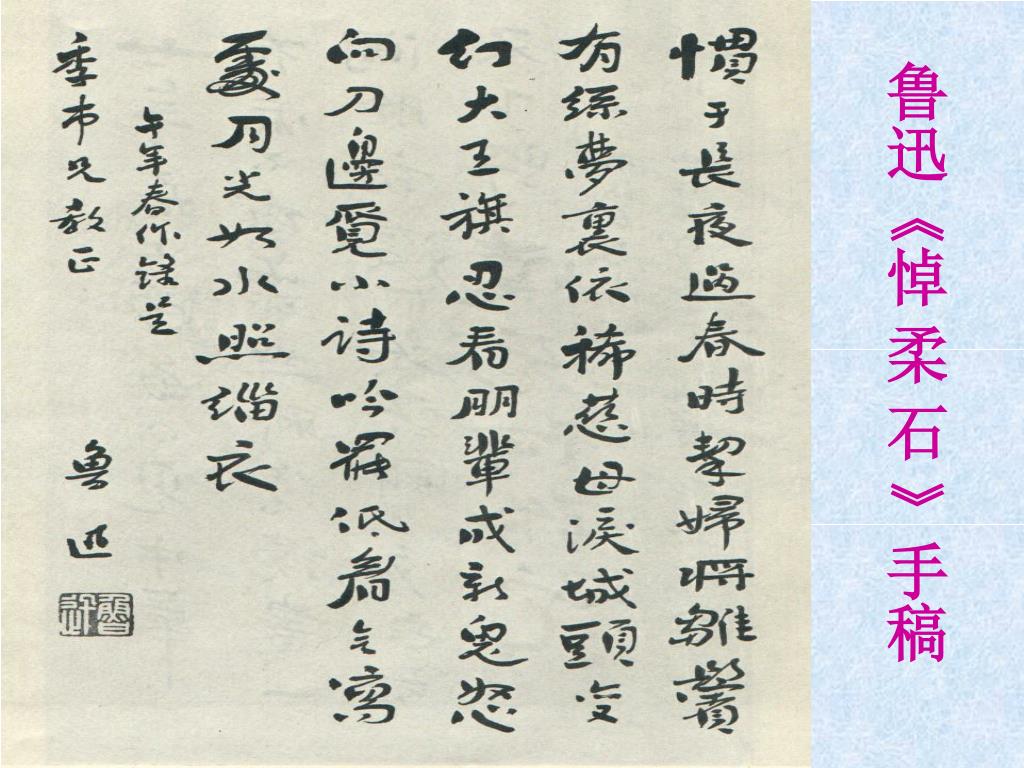 鲁迅《悼柔石》手稿
慣于長夜過春時挈婦將雛鬢
有絲夢裏依稀慈母淚城頭变
幻大王旗忍看朋輩成新鬼怒
向刀邊覓小詩吟罷低眉无寫
處月光如水照緇衣
午年春作錄呈
季市兄教正
魯迅